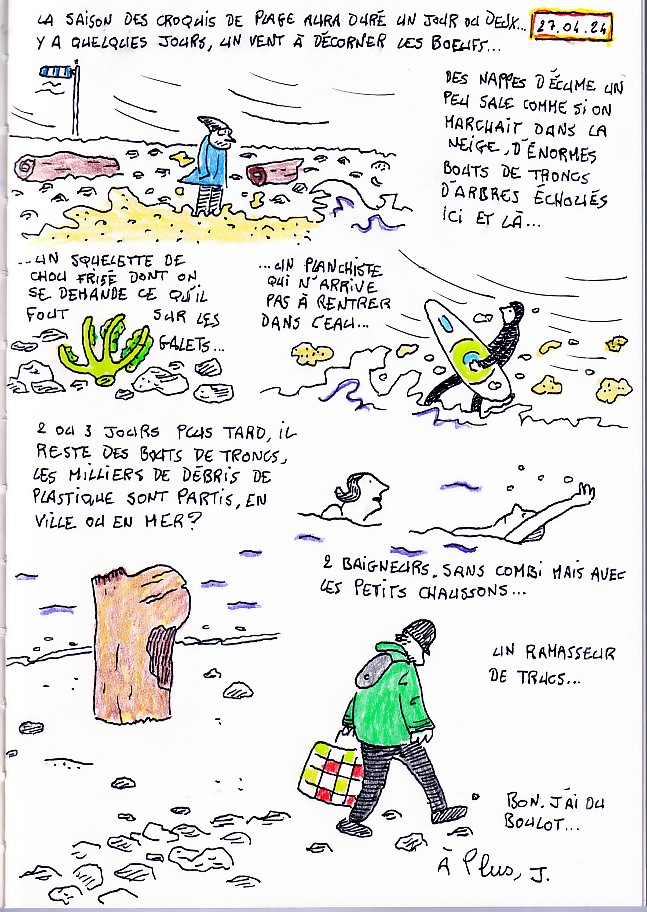 LA SAISON DES CROQUIS DE PLAGE AURA DURÉ UN JOUR OU DEUX...
27.04.24
Y A QUELQUES JOURS, UN VENT À DÉCORNER LES BOEUFS...
DES NAPPES D'ÉCUME UN
PEU SALE COMME SI ON
MARCHAIT DANS LA
NEIGE, D'ÉNORMES
BOUTS DE TRONCS
D'ARBRES ÉCHOUÉS
ICI ET LÀ...
...UN SQUELETTE DE
CHOU FRISÉ DONT ON
SE DEMANDE CE QU'IL
FOUT SUR LES
GALETS...
...UN PLANCHISTE
QUI N'ARRIVE
PAS À RENTRER
DANS L'EAU...
2 OU 3 JOURS PLUS TARD, IL
RESTE DES BOUTS DE TRONCS,
LES MILLIERS DE DÉBRIS DE
PLASTIQUE SONT PARTIS, EN
VILLE OU EN MER?
2 BAIGNEURS. SANS COMBI MAIS AVEC
LES PETITS CHAUSSONS...
UN RAMASSEUR
DE TRUCS...
BON. J'AI DU
BOULOT...
À Plus, J.